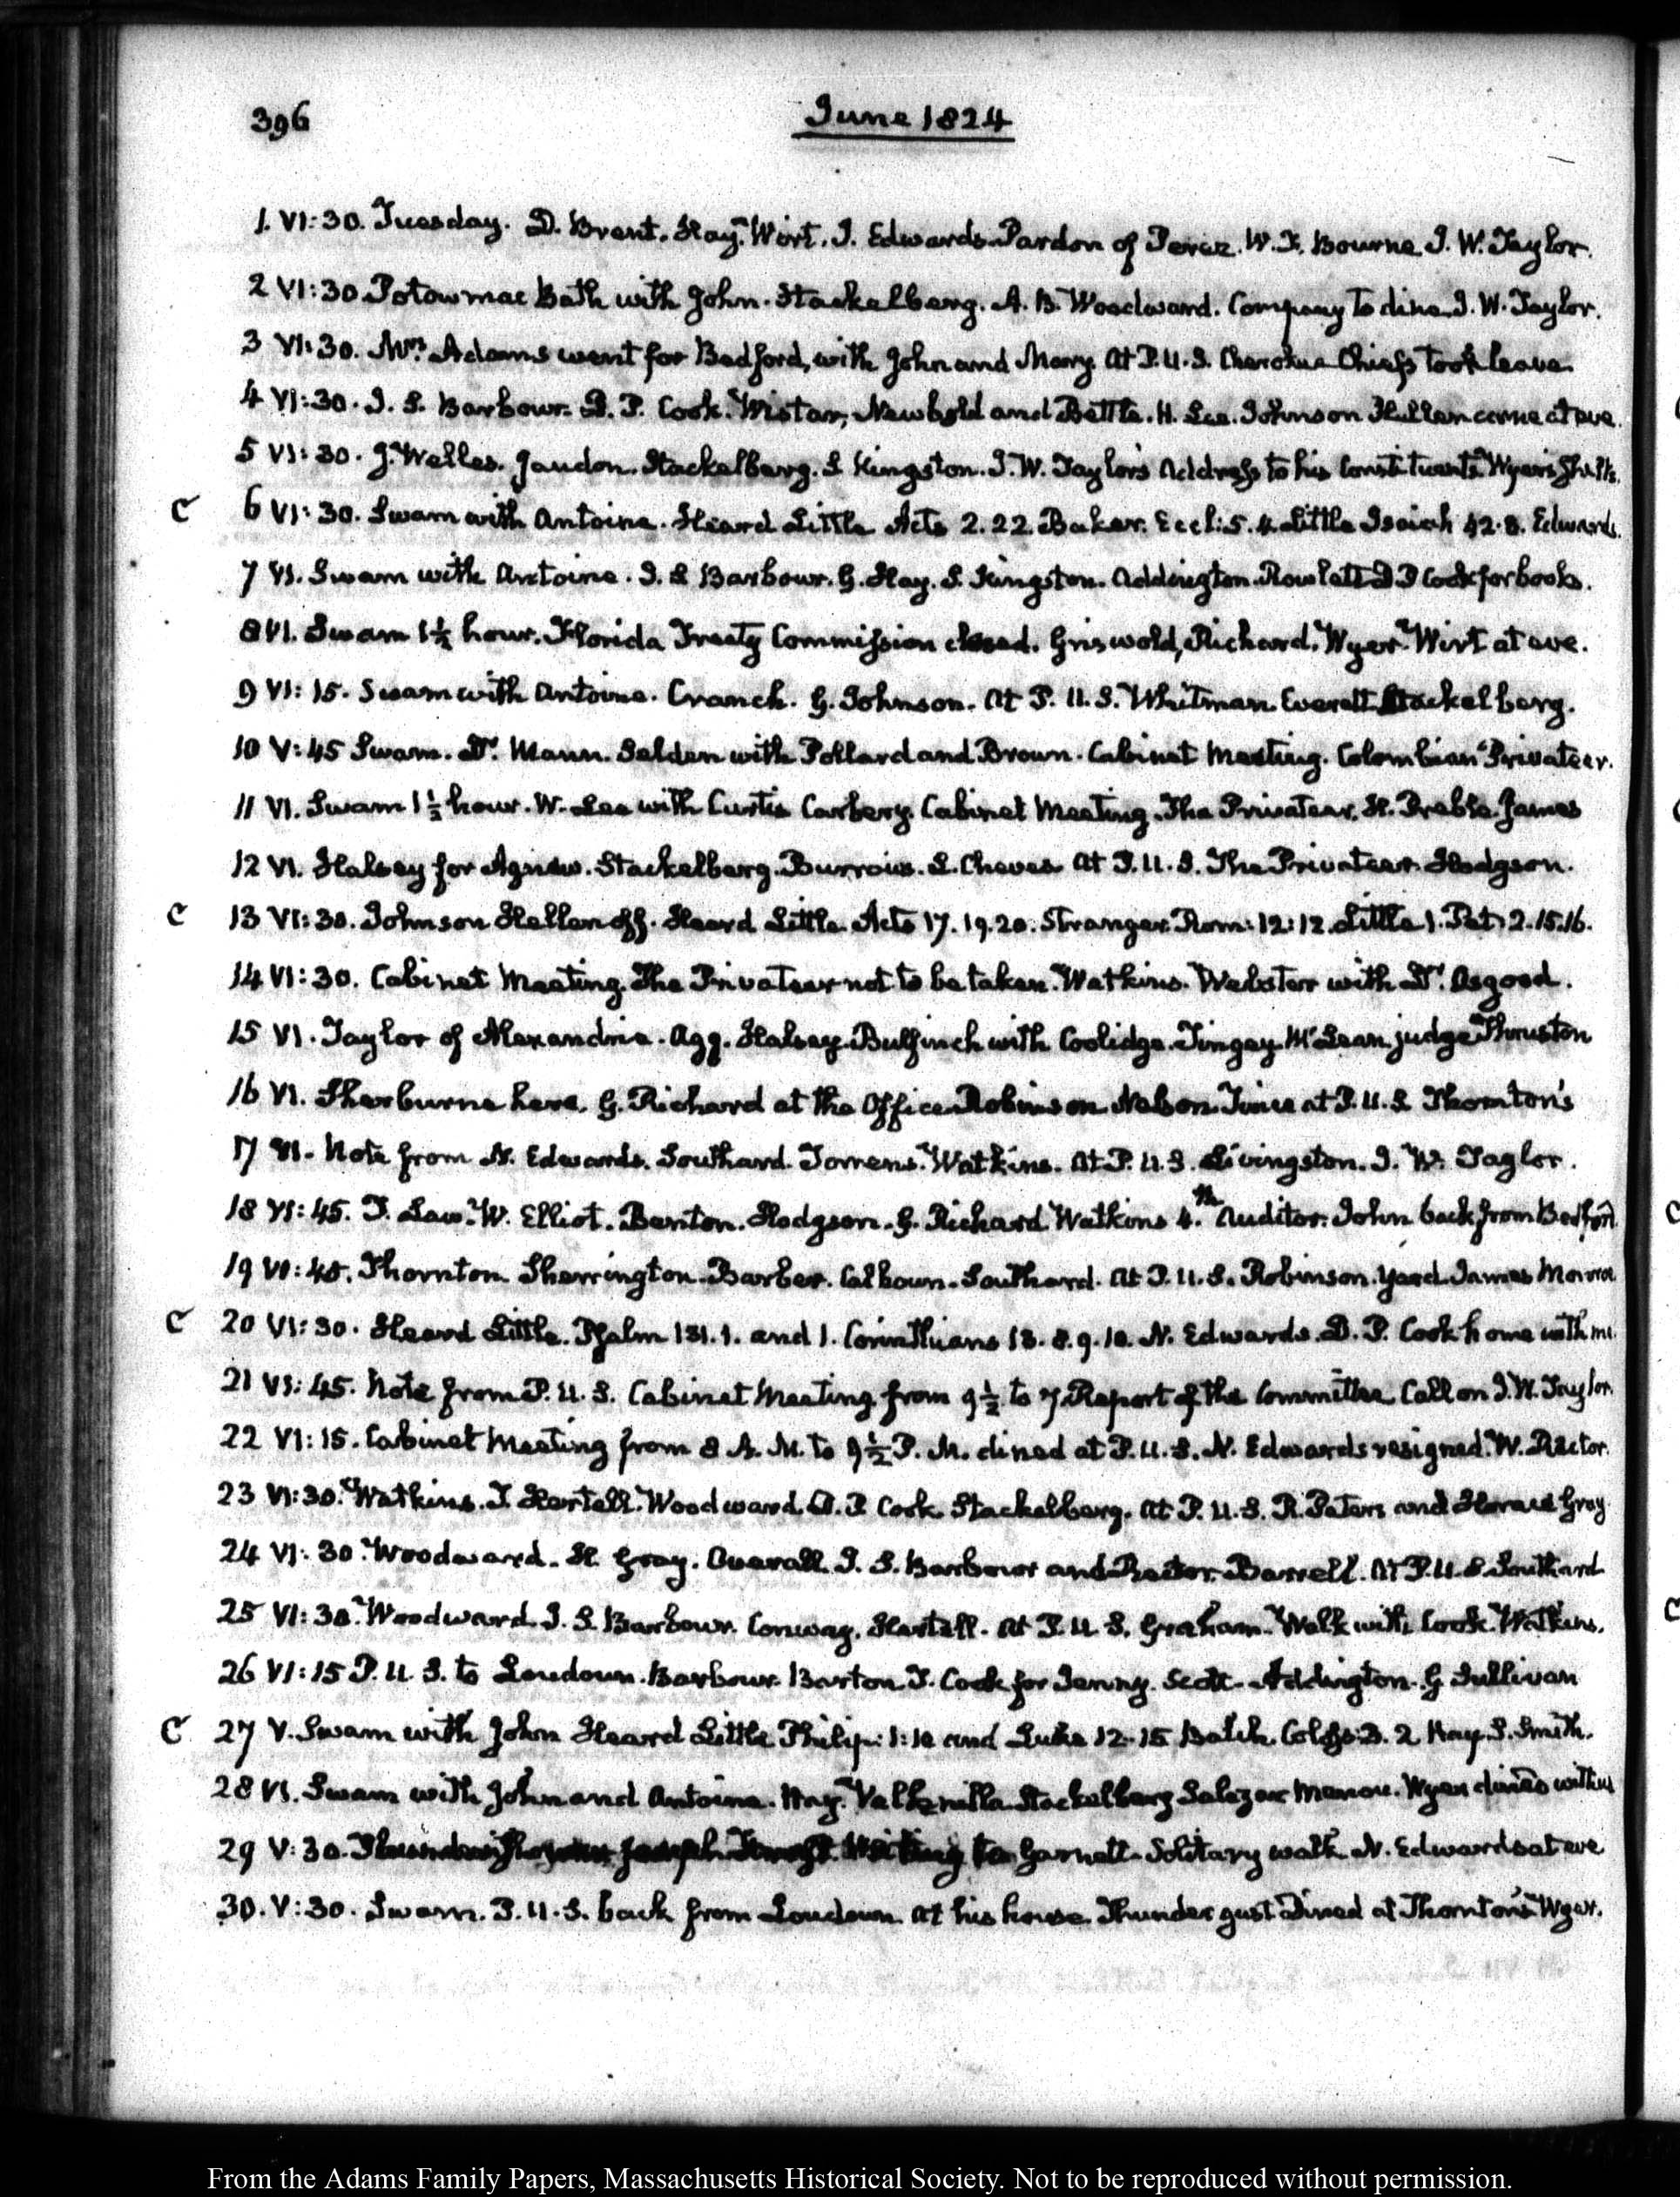 396
June 1824
1. VI:30. Tuesday. D. Brent. Hay. Wirt. I. Edwards. Pardon of Perez. W. F. Bourne. J. W. Taylor.
2 VI:30 Potowmac Bath with John. Stackelberg. A. B. Woodward. Company to dine. J. W. Taylor.
3 VI:30. Mrs. Adams went for Bedford, with John and Mary. At P.U.S. Cherokee Chiefs took leave.
4 VI:30. J. S. Barbour. D. P. Cook. Wistar, Newbold and Bettle. H. Lee. Johnson Hellen came at eve.
5 VI:30. J. Welles. Jaudon. Stackelberg. S Kingston. J. W. Taylor's Address to his Constituents. Wyer's
C 6 VI:30. Swam with Antoine. Heard Little Acts 2. 22. Baker. Eccl: 5. 4. Little Isaiah 42. 8. Edwards.
7 VI. Swam with Antoine. J. S Barbour. G. Hay. S. Kingston. Addington. Rowlett D P Cook for books.
8 VI. Swam 1½ hour. Florida Treaty Commission closed. Griswold, Richard. Wyer. Wirt at eve.
9 VI:15. Swam with Antoine. Cranch. G. Johnson. At P.U.S. Whitman. Everett. Stackelberg.
10 V:45 Swam. Dr. Mann. Selden with Pollard and Brown. Cabinet Meeting. Colombian Privateer.
11 VI. Swam 1½ hour. W. Lee with Curtis Carbery. Cabinet Meeting. The Privateer. H. Preble. James
12 VI. Halsey for Agnew. Stackelberg. Burrows. L. Cheves. At P.U.S. The Privateer. Hodgson.
C 13 VI:30. Johnson Hellen off. Heard Little. Acts 17. 19. 20. Stranger. Rom: 12:12. Little 1. Pet: 2. 15. 16.
14 VI:30. Cabinet Meeting. The Privateer not to be taken. Watkins. Webster with Dr. Osgood.
15 VI. Taylor of Alexandria. Agg. Halsey. Bulfinch with Coolidge. Tingey. McLean. judge Thruston
16 VI. Sherburne here. G. Richard at the Office. Robinson. Nelson. Twice at P.U.S. Thornton's
17 VI. Note from N. Edwards. Southard. Torrens. Watkins. At P.U.S. Livingston. J. W. Taylor.
18 VI:45. T. Law. W. Elliot. Benton. Hodgson. G. Richard. Watkins 4th. Auditor. John back from Bedford
19 VI:45. Thornton. Sherrington. Barber. Calhoun. Southard. At P.U.S. Robinson. Yard. James Monroe
C 20 VI:30. Heard Little. Psalm 131. 1. and 1. Corinthians 13. 8. 9. 10. N. Edwards. D. P. Cook home with me.
21 VI:45. Note from P.U.S. Cabinet Meeting from 9½ to 7. Report of the Committee. Call on J. W. Taylor.
22 VI:15. Cabinet Meeting from 8 A. M. to 9½ P. M. dined at P.U.S. N. Edwards resigned. W. Rector.
23 VI:30. Watkins. T Hertell. Woodward. D. P. Cook. Stackelberg. At P.U.S. R. Peters and Horace Gray
24 VI:30. Woodward. H. Gray. Overall. J. S. Barbour and Rector. Barrell. At P.U.S. Southard
25 VI:30. Woodward. J. S. Barbour. Conway. Hertell. At P.U.S. Graham. Walk with Cook. Watkins.
26 VI:15 P.U.S. to Loudoun. Barbour. Barton. T. Cook for Jenny. Scott. Addington. G Sullivan
C 27 V. Swam with John. Heard Little Philip: 1:10 and Luke 12. 15 Balch. Coloss: 3. 2 Hay. S. Smith.
28 VI. Swam with John and Antoine. Hay. Stackelberg Salazar Menou. Wyer dined with us
29 V:30. Garnett. Solitary walk. N. Edwards at eve
30. V:30. Swam. P.U.S. back from Loudoun. At his house. Thunder gust. Dined at Thornton's. Wyer.
From the Adams Family Papers, Massachusetts Historical Society. Not to be reproduced without permission.